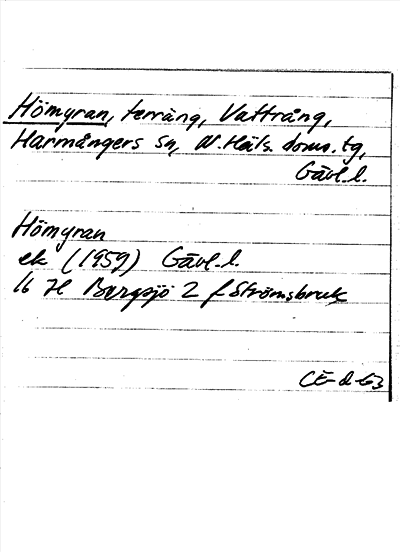 Hömyran, terräng, Vattrång,
Harmångers sn, N. Häls. doms. tg,
Gävl. l.
Hömyran
ek (1959) Gävl. l.
16 H Bergsjö 2 f Strömsbruk
CE-d-63